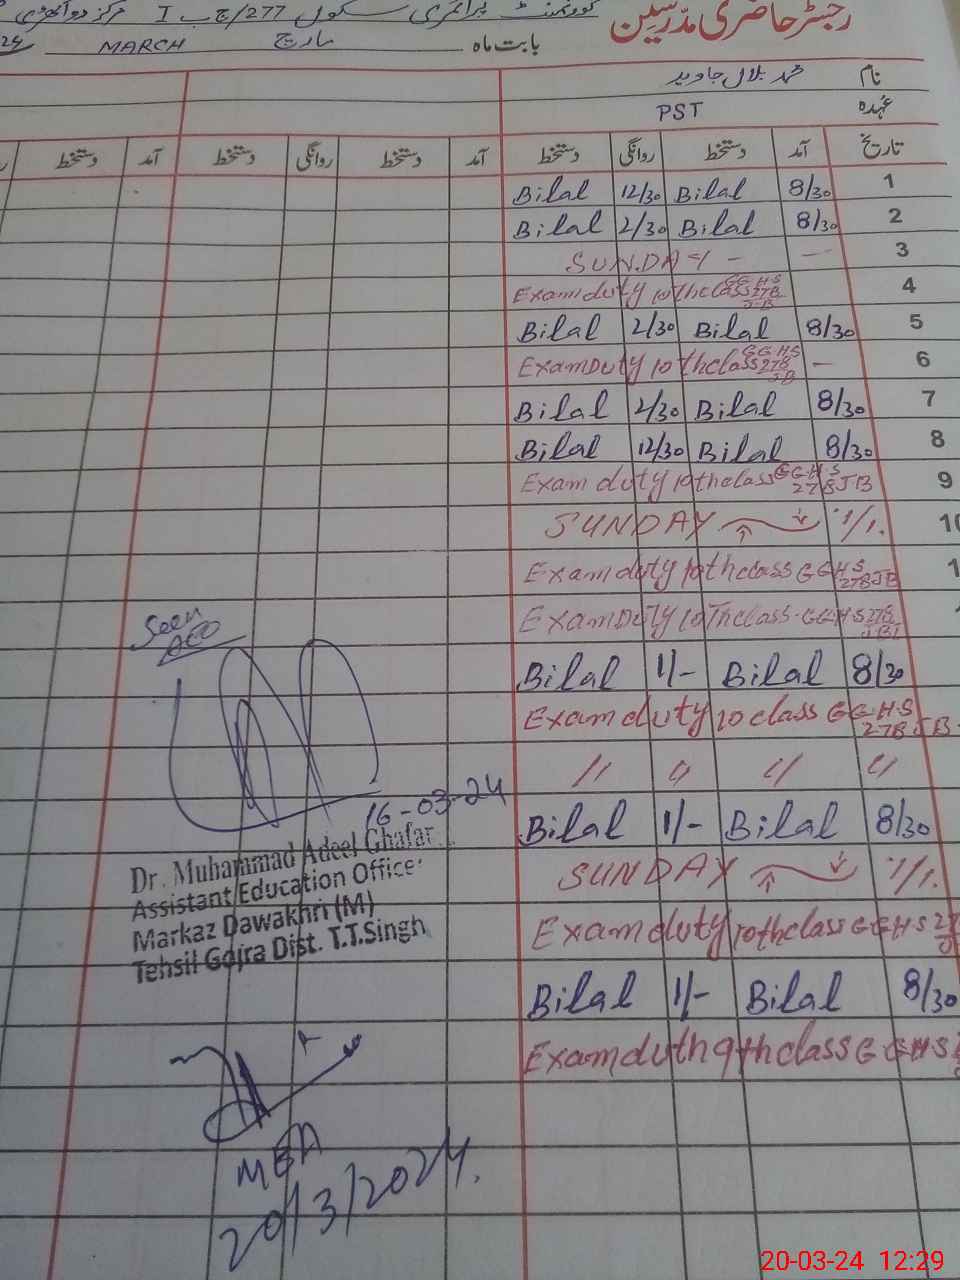 رجسٹر حاضری مدرسین
گورنمنٹ پرائمری سکول 277/ج ب I مرکز دواکھری
بابت ماہ مارچ MARCH 24
نام محمد بلال جاوید
عہدہ PST
تاریخ آمد دستخط روانگی دستخط آمد دستخط روانگی دستخط آمد دستخط
1 8/30 Bilal 12/30 Bilal
2 8/30 Bilal 2/30 Bilal
3 — SUNDAY -
4 Exam duty 10th class GGHS 278 JB
5 8/30 Bilal 2/30 Bilal
6 — Exam Duty 10th class GGHS 278 JB
7 8/30 Bilal 2/30 Bilal
8 8/30 Bilal 12/30 Bilal
9 Exam duty 10th class GGHS 278 JB
10 SUNDAY 1/1.
1 Exam duty 10th class GGHS 278 JB
Exam Duty 10Th class GGHS 278 JB
8/30 Bilal 1/- Bilal
Exam duty 10 class GGHS 278 JB
〃 〃 〃 〃
8/30 Bilal 1/- Bilal
SUNDAY 1/1.
Exam duty 10th class GGHS
8/30 Bilal 1/- Bilal
Exam duth 9th class GGHS
Seen
AEO
16-03-24
Dr. Muhammad Adeel Ghafar
Assistant Education Officer
Markaz Dawakhri (M)
Tehsil Gojra Dist. T.T.Singh
MEA
20/3/2024.
20-03-24 12:29